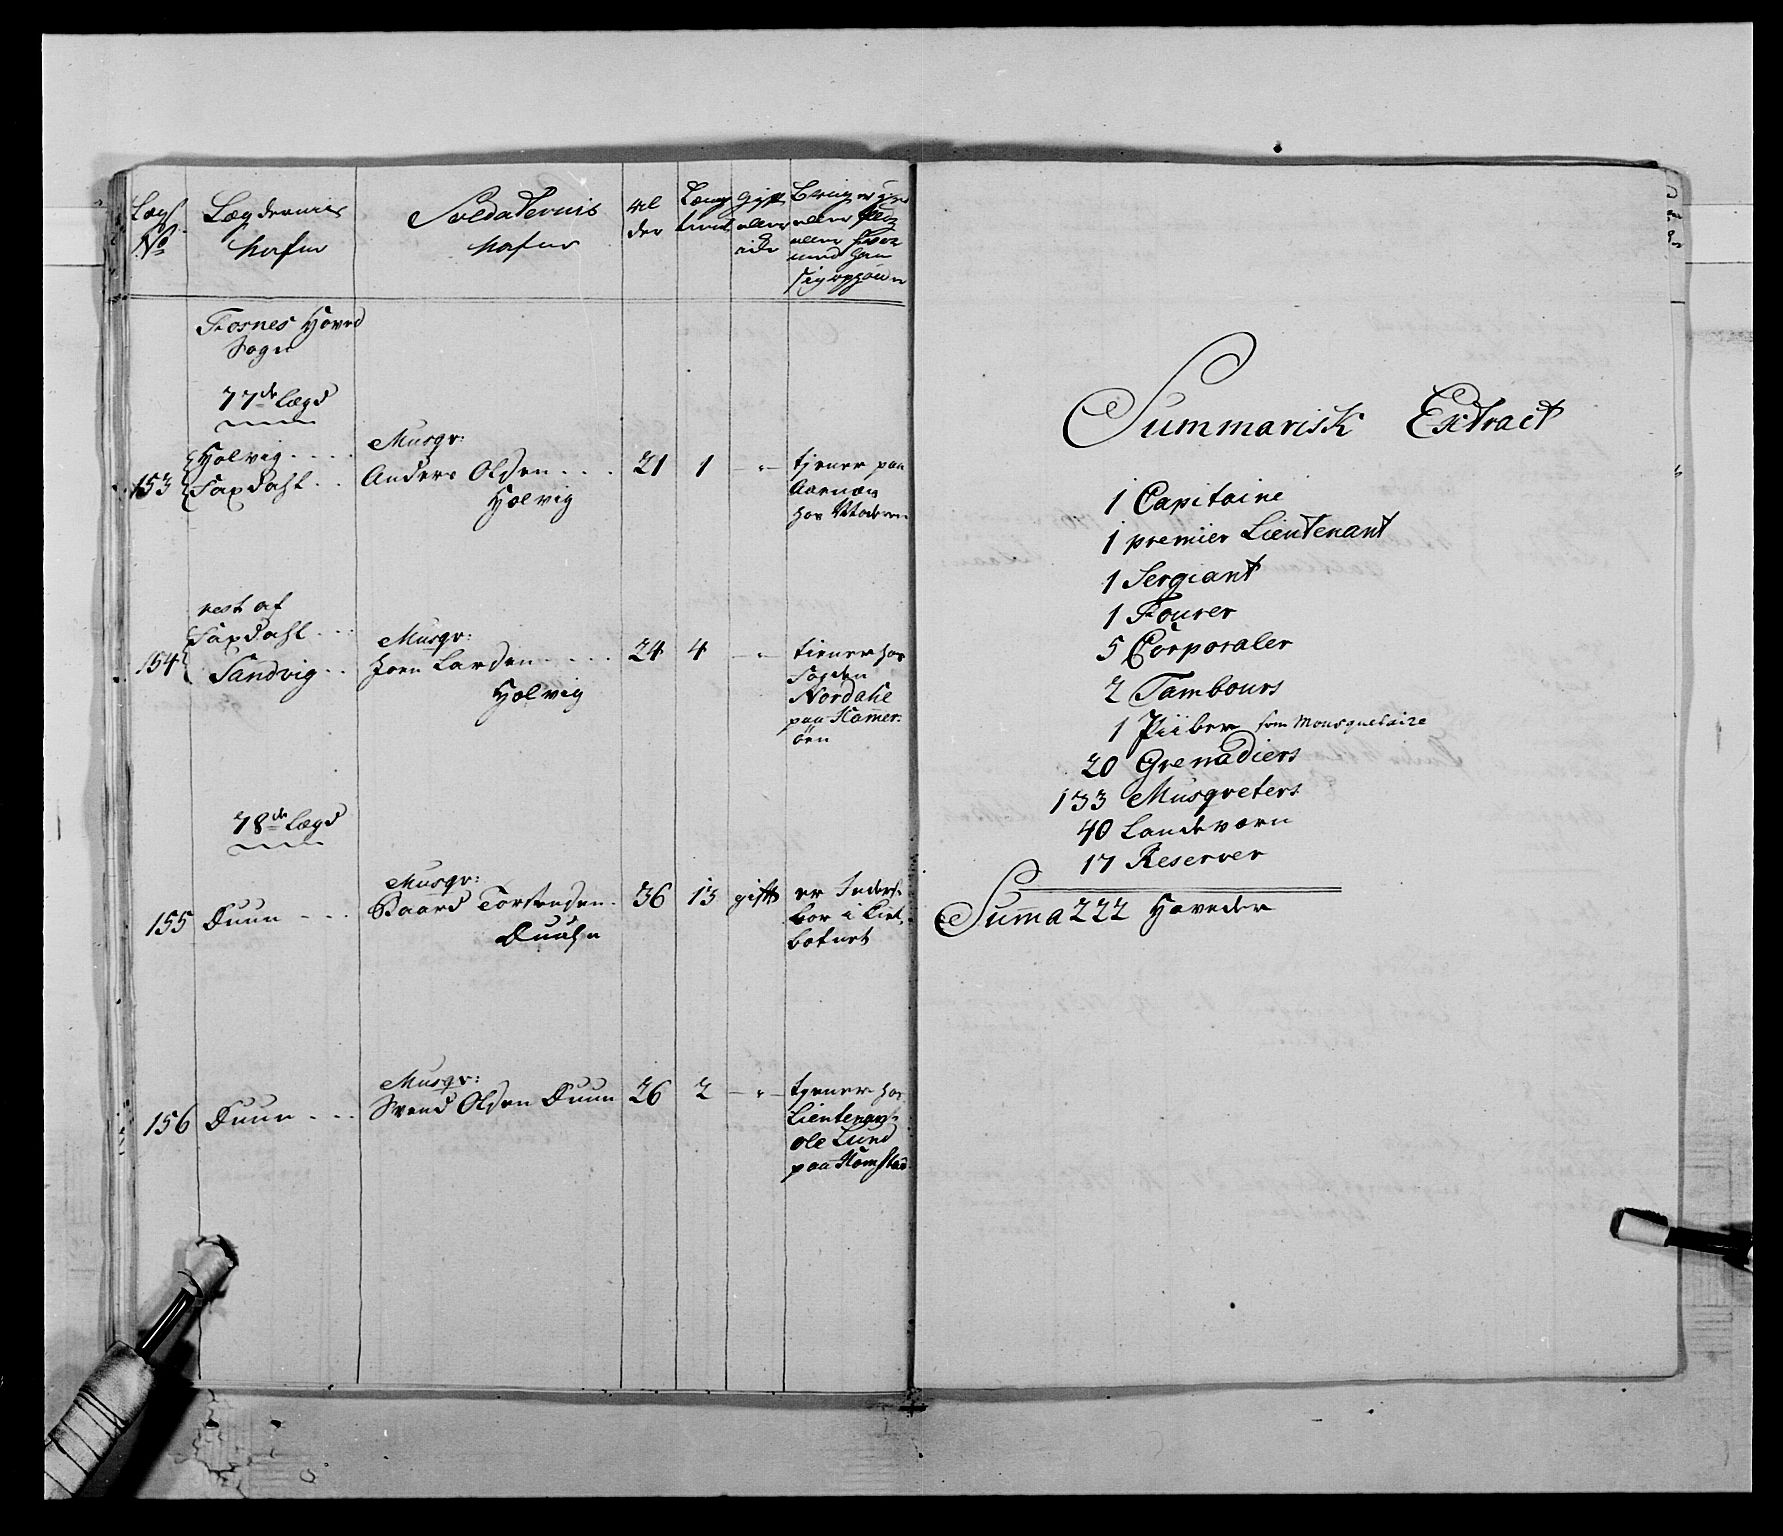 Lægd
No
Lægdernes
Nafne
Soldaternis
Nafne
Al
der
Læng
tient
gift
eller
icke
eller
eller
med han
Fosnes Hoved
Sogn
77de Lægd
153
Holvig
Saxdahl
Musqr:
Anders Olsen
Holvig
21 1 - " -
tjener paa
Aarnæs
hos Moderen
rest af
Saxdahl
154 Sandvig
Musqr:
Joen Larsen
Holvig
24 4 - "
tiener hos
Fogden
Nordahl
paa Hammer:
öen
78de Lægd
155 Duun
Musqr:
Baard Torstensen
Duuhn
36 13 gift
er Inders:
bor i
botnet
156 Duun
Musqr:
Svend Olsen Duun
26 2 - " -
tjener hos
Lieutenant
Ole Lund
paa Homstad
Summarisk Extract
1 Capitaine
1 premier Lieutenant
1 Sergiant
1 Fourer
5 Corporaler
2 Tambours
1 Piiber som Mousquetaire
20 Grenadiers
133 Musqveters
40 Landeværn
17 Reserver
Summa 222 Hoveder